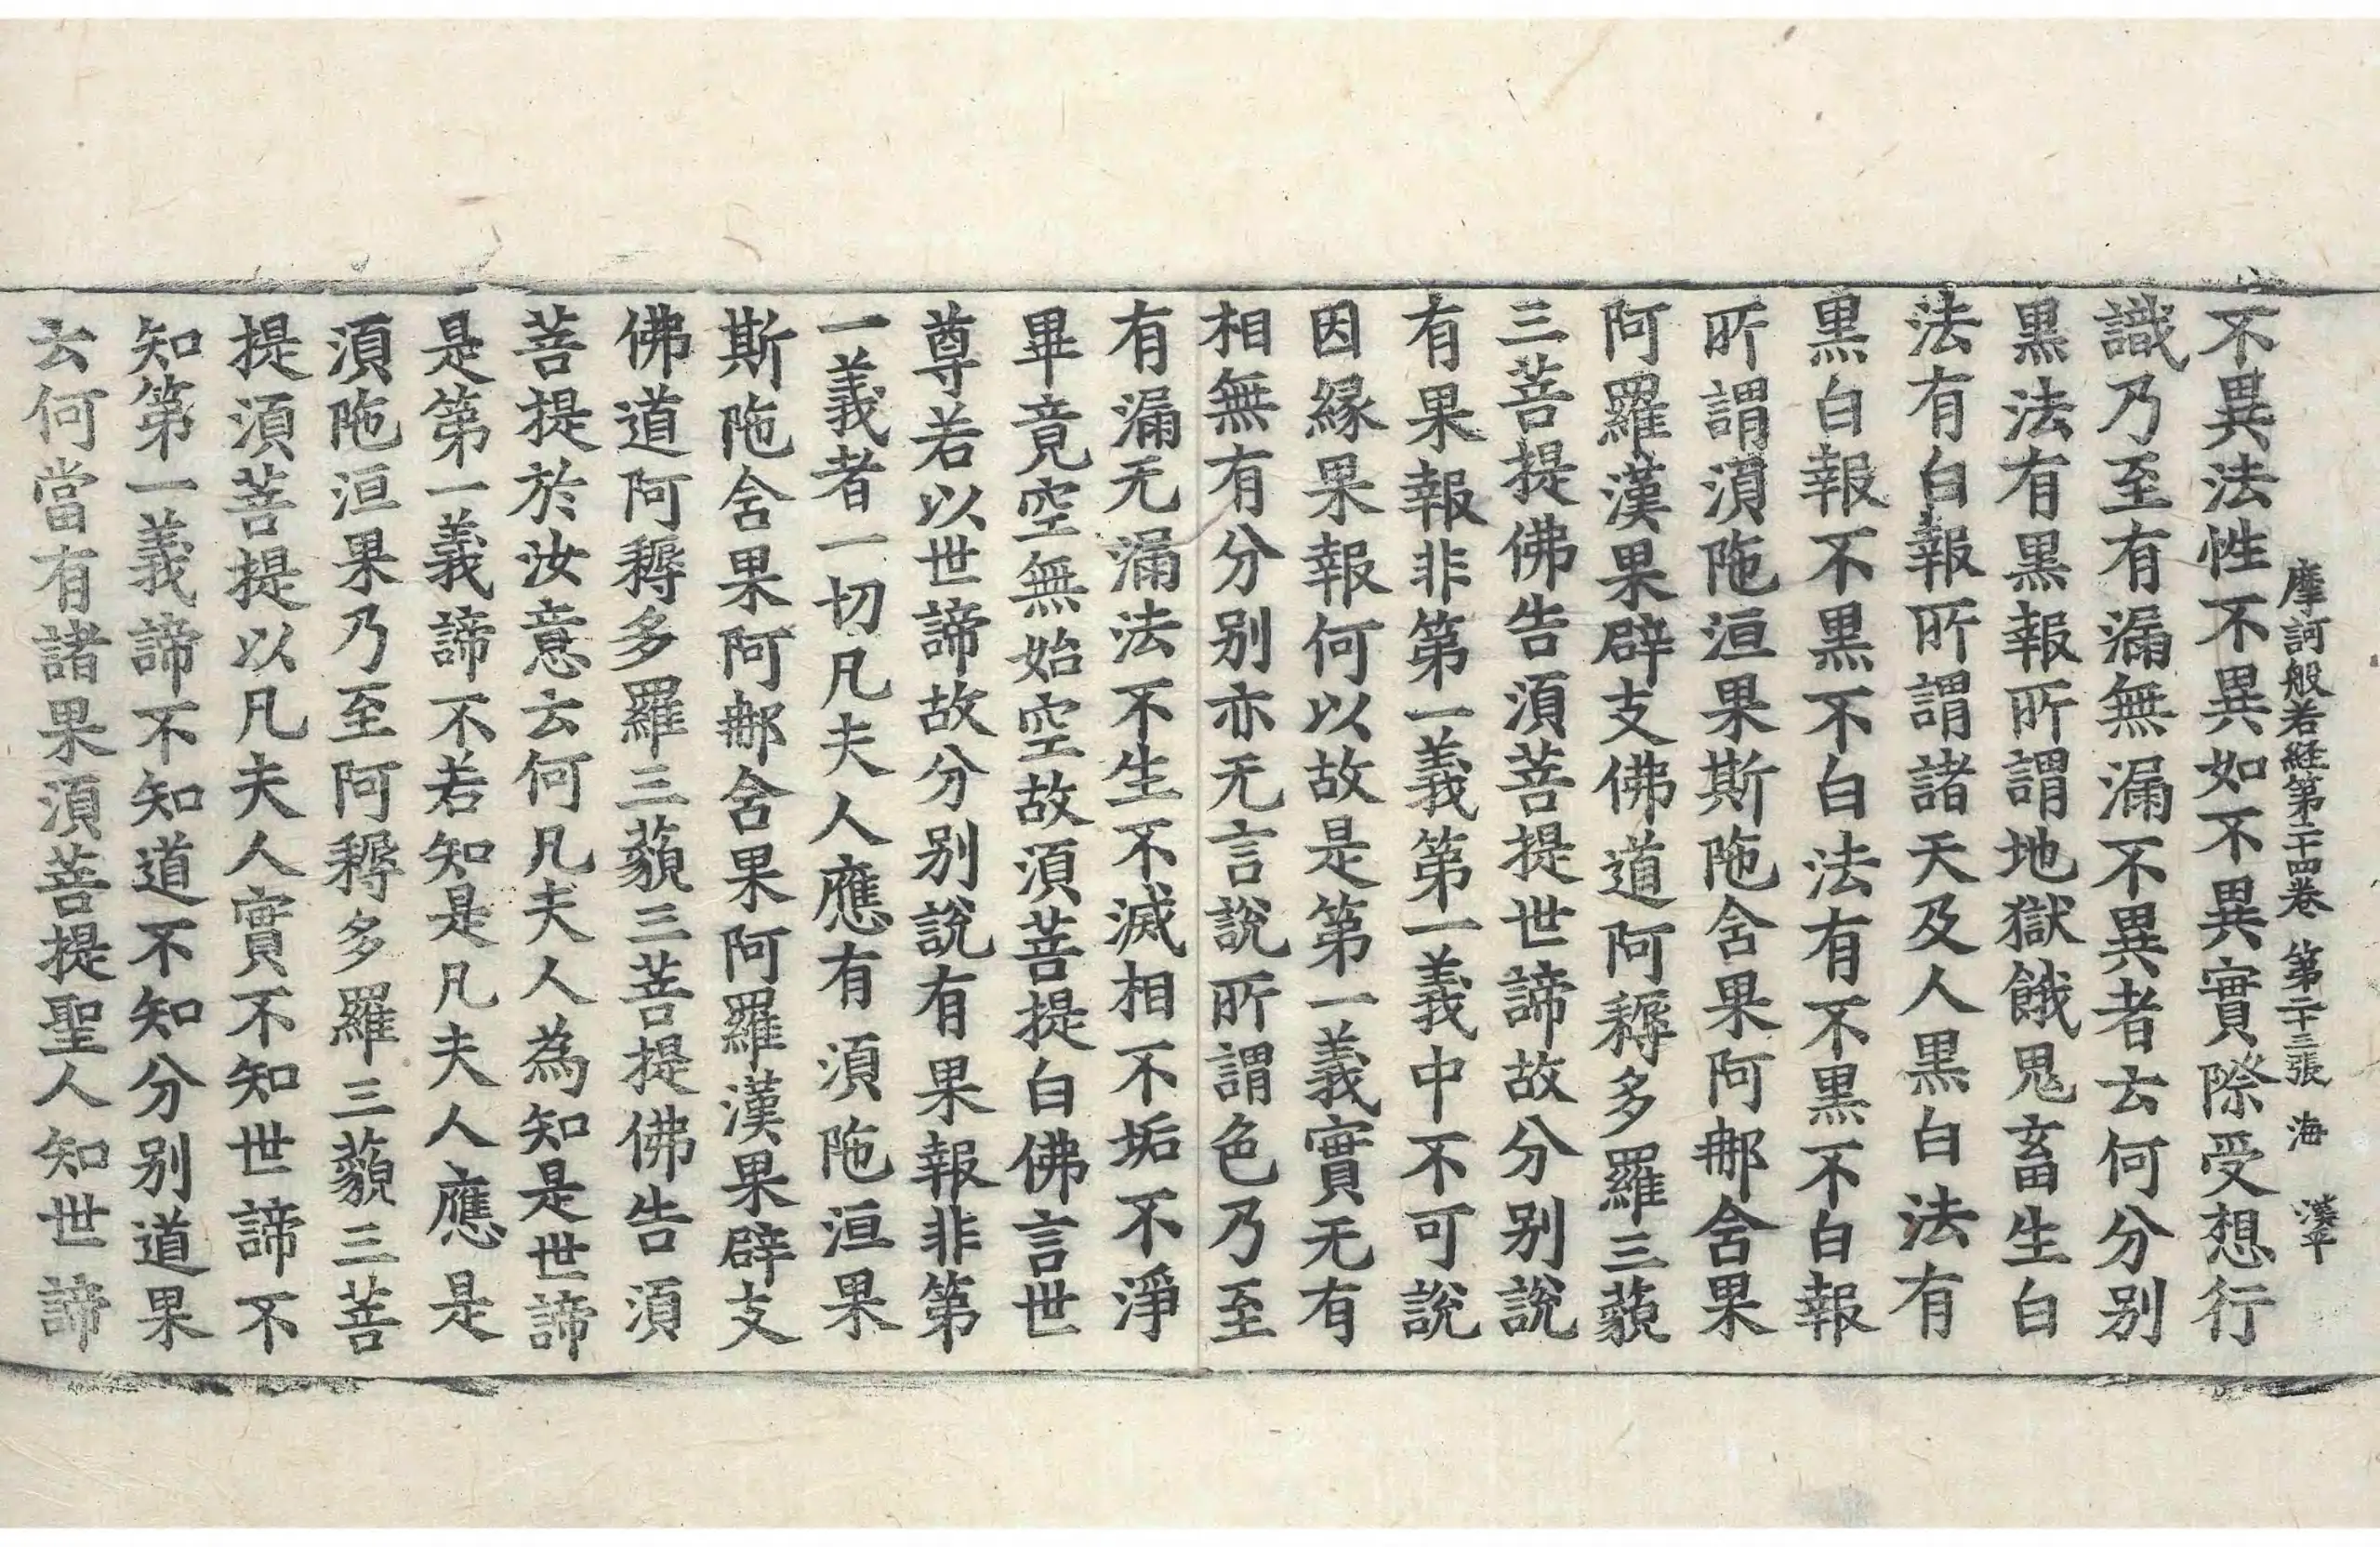 摩訶般若経第二十四卷 第二十三張 海 漢平
不異法性不異如不異實際受想行
識乃至有漏無漏不異者云何分别
黒法有黒報所謂地獄餓鬼畜生白
法有白報所謂諸天及人黒白法有
黒白報不黒不白法有不黒不白報
所謂湏陁洹果斯陁含果阿那含果
阿羅漢果辟支佛道阿耨多羅三藐
三菩提佛告湏菩提世諦故分别説
有果報非第一義第一義中不可說
因縁果報何以故是第一義實无有
相無有分别亦无言說所謂色乃至
有漏无漏法不生不滅相不垢不淨
畢竟空無始空故湏菩提白佛言世
尊若以世諦故分别說有果報非第
一義者一切凡夫人應有湏陁洹果
斯陁含果阿那含果阿羅漢果辟支
佛道阿耨多羅三藐三菩提佛告湏
菩提於汝意云何凡夫人為知是世諦
是第一義諦不若知是凡夫人應是
湏陁洹果乃至阿耨多羅三藐三菩
提湏菩提以凡夫人實不知世諦不
知第一義諦不知道不知分别道果
云何當有諸果湏菩提聖人知世諦